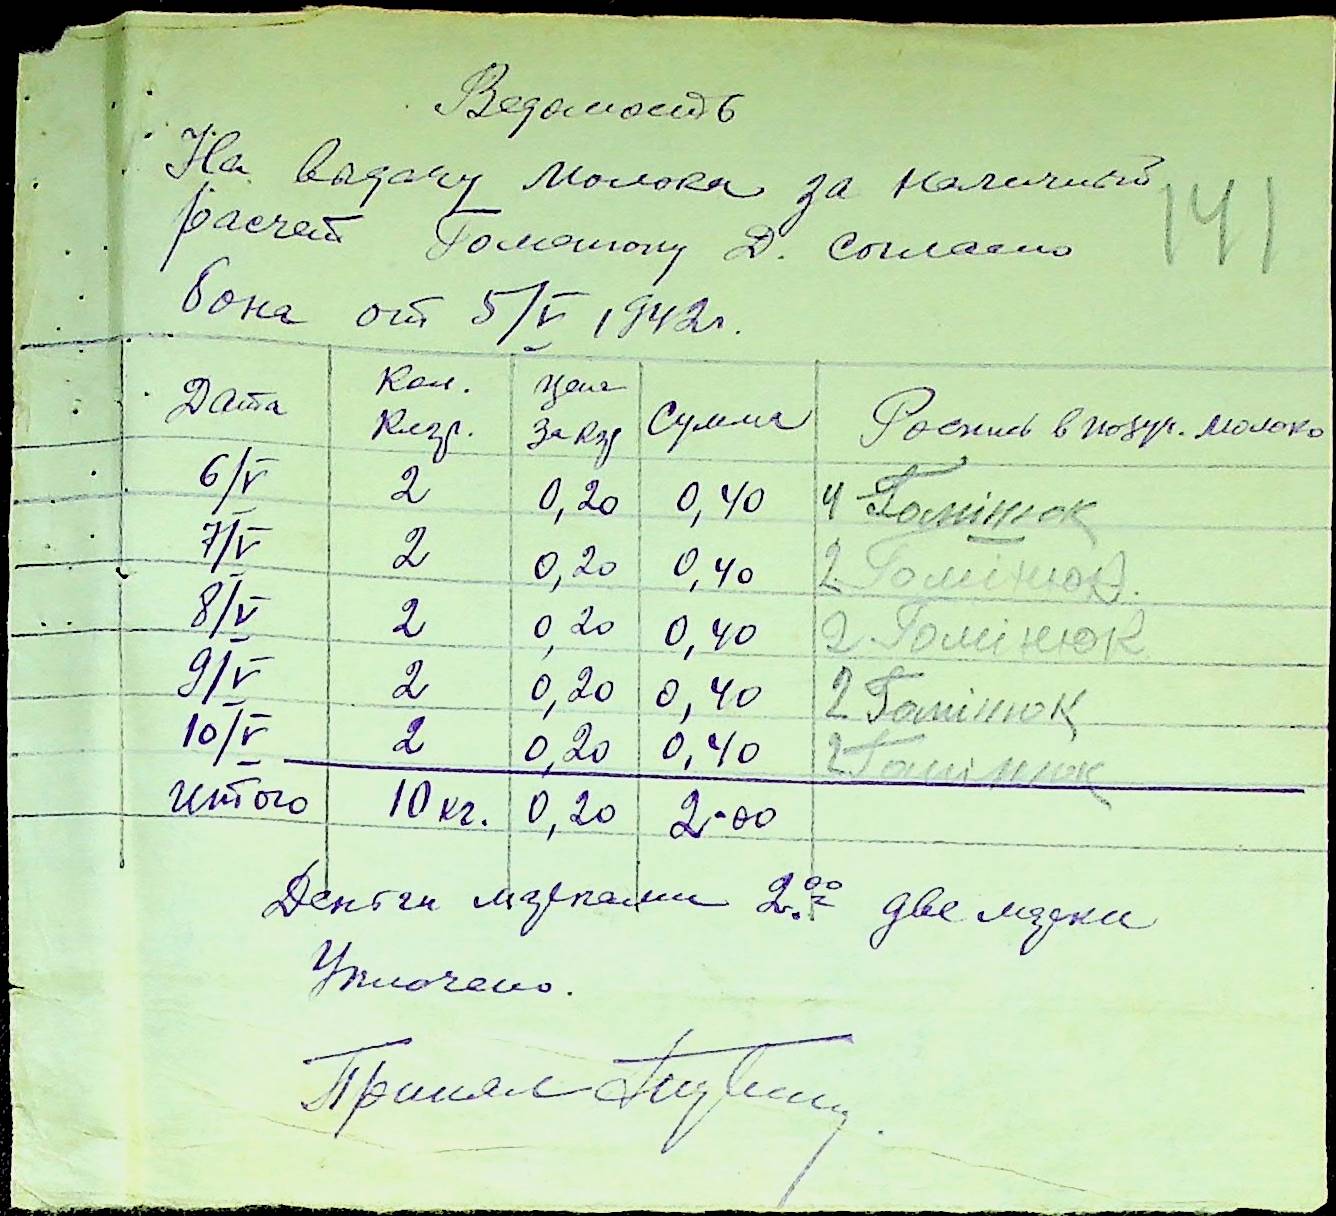 Ведомость
На выдачу молока за наличный
расчет Гоменюку Д. согласно
бона от 5/V 1942г.
141
Дата Кол. Клгр. Цена за кгр Сумма Роспись в получ. молоко
6/V 2 0,20 0,40 4 Гомінюк
7/V 2 0,20 0,40 2 Гомінюк.
8/V 2 0,20 0,40 2 Гомінюк
9/V 2 0,20 0,40 2 Гомінюк
10/V 2 0,20 0,40 2 Гомінюк
итого 10 кг. 0,20 2-00
Деньги марками 2.00 две марки
Уплочено.
Принял